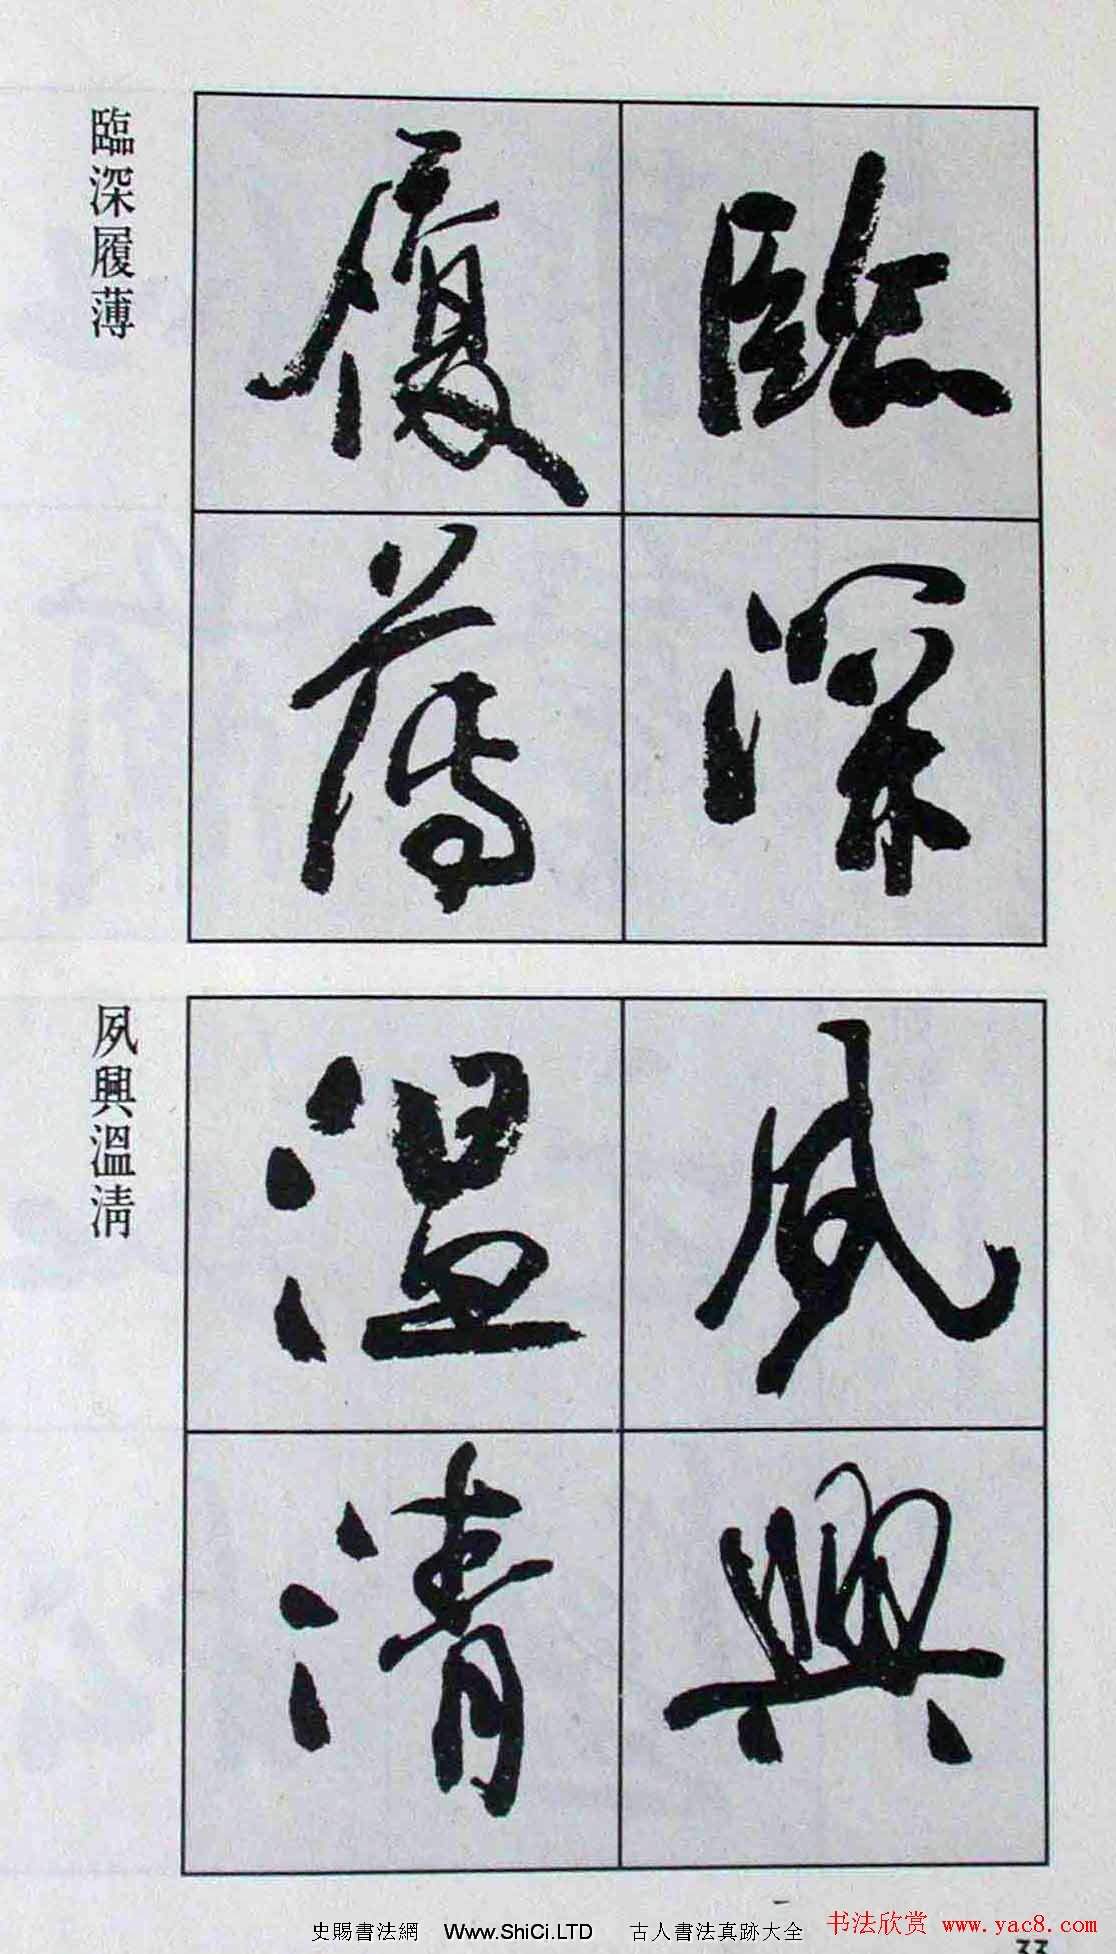 臨深
履薄
臨深履薄
夙興
溫清
夙興溫清
史賜書法網 Www.ShiCi.LTD 古人書法真跡大全
书法欣赏 www.yac8.com
33